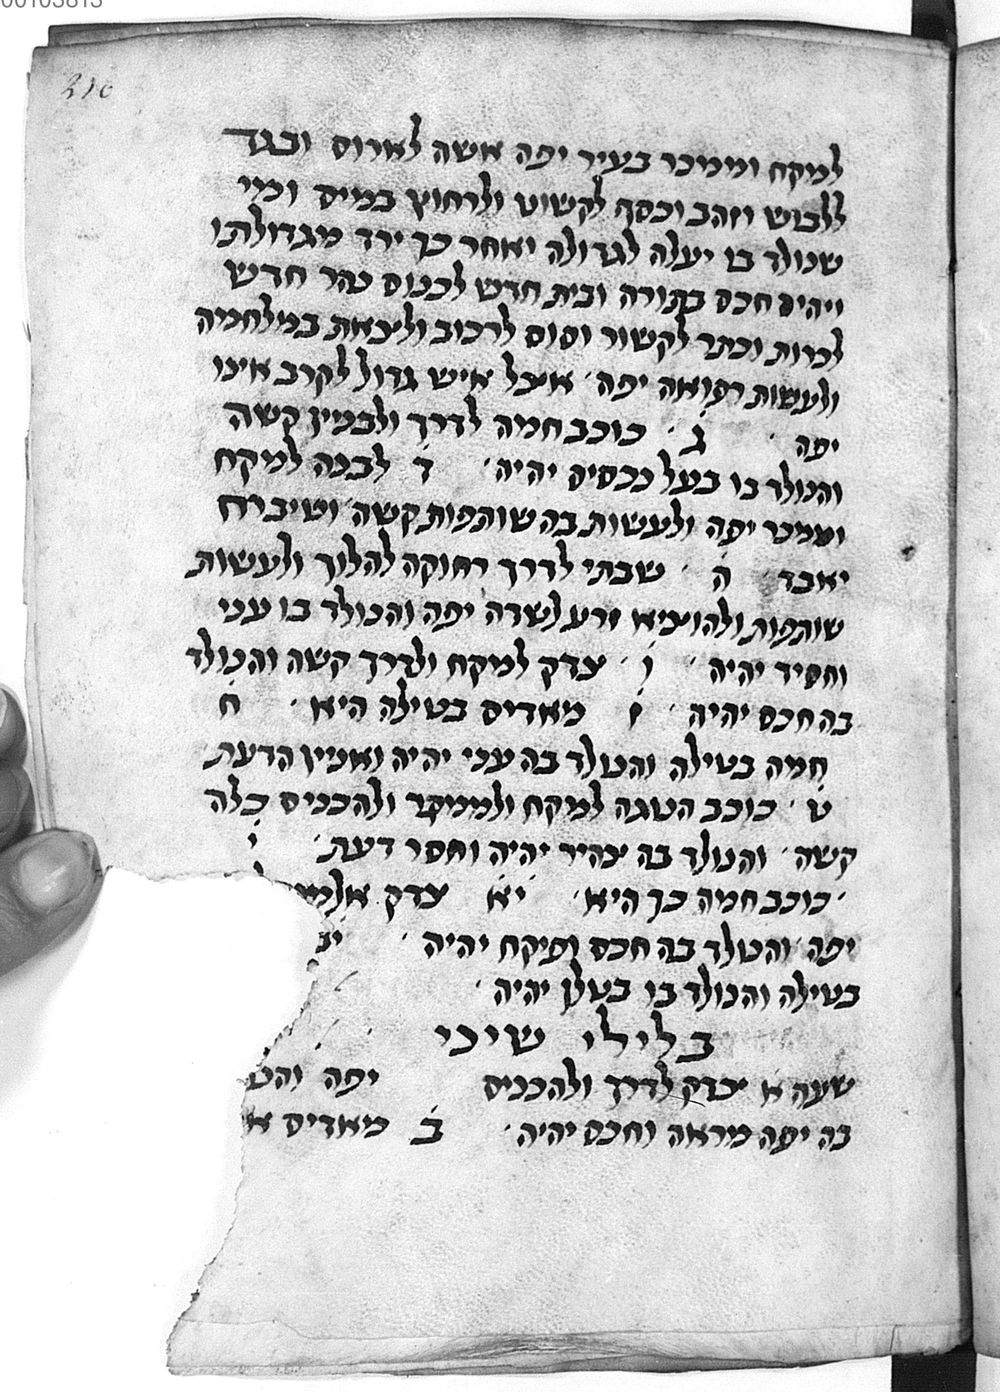 00103813
210
למקח וממכר בעיר יפה אשה לארוס ובגד
ללבוש וזהב וכסף לקשוט ולרחוץ במים ומי
שנולד בו יעלה לגדולה ואחר כך ירד מגדולתו
ויהיה חכם בתורה ובית חדש לכנוס נהר חדש
לכרות וכתר לקשור וסוס לרכוב וליצאת במלחמה
ולעשות רפואה יפה אצל איש גדול לקרב אינו
יפה ג כוכב חמה לדרך ולבניין קשה
והנולד בו בעל נכסים יהיה ד לבנה למקח
וממכר יפה ולעשות בה שותפות קשה ושיברח
יאבד ה שבתי לדרך רחוקה להלוך ולעשות
שותפות ולהוציא זרע לשדה יפה והנולד בו עני
וחסיד יהיה ו צדק למקח ולדרך קשה והנולד
בה חכם יהיה ז מאדים בטילה היא ח
חמה בטילה והנולד בה עני יהיה ואמין הדעת
ט כוכב הנוגה למקח ולממכר ולהכניס כלה
קשה והנולד בה צהיר יהיה וחסר דעת י
כוכב חמה כך היא יא צדק
יפה והנולד בה חכם ופיקח יהיה
בטילה והנולד בו בטלן יהיה
בלילי שיני
שעה א צדק לדרך ולהכניס יפה
בה יפה מראה וחכם יהיה ב מאדים